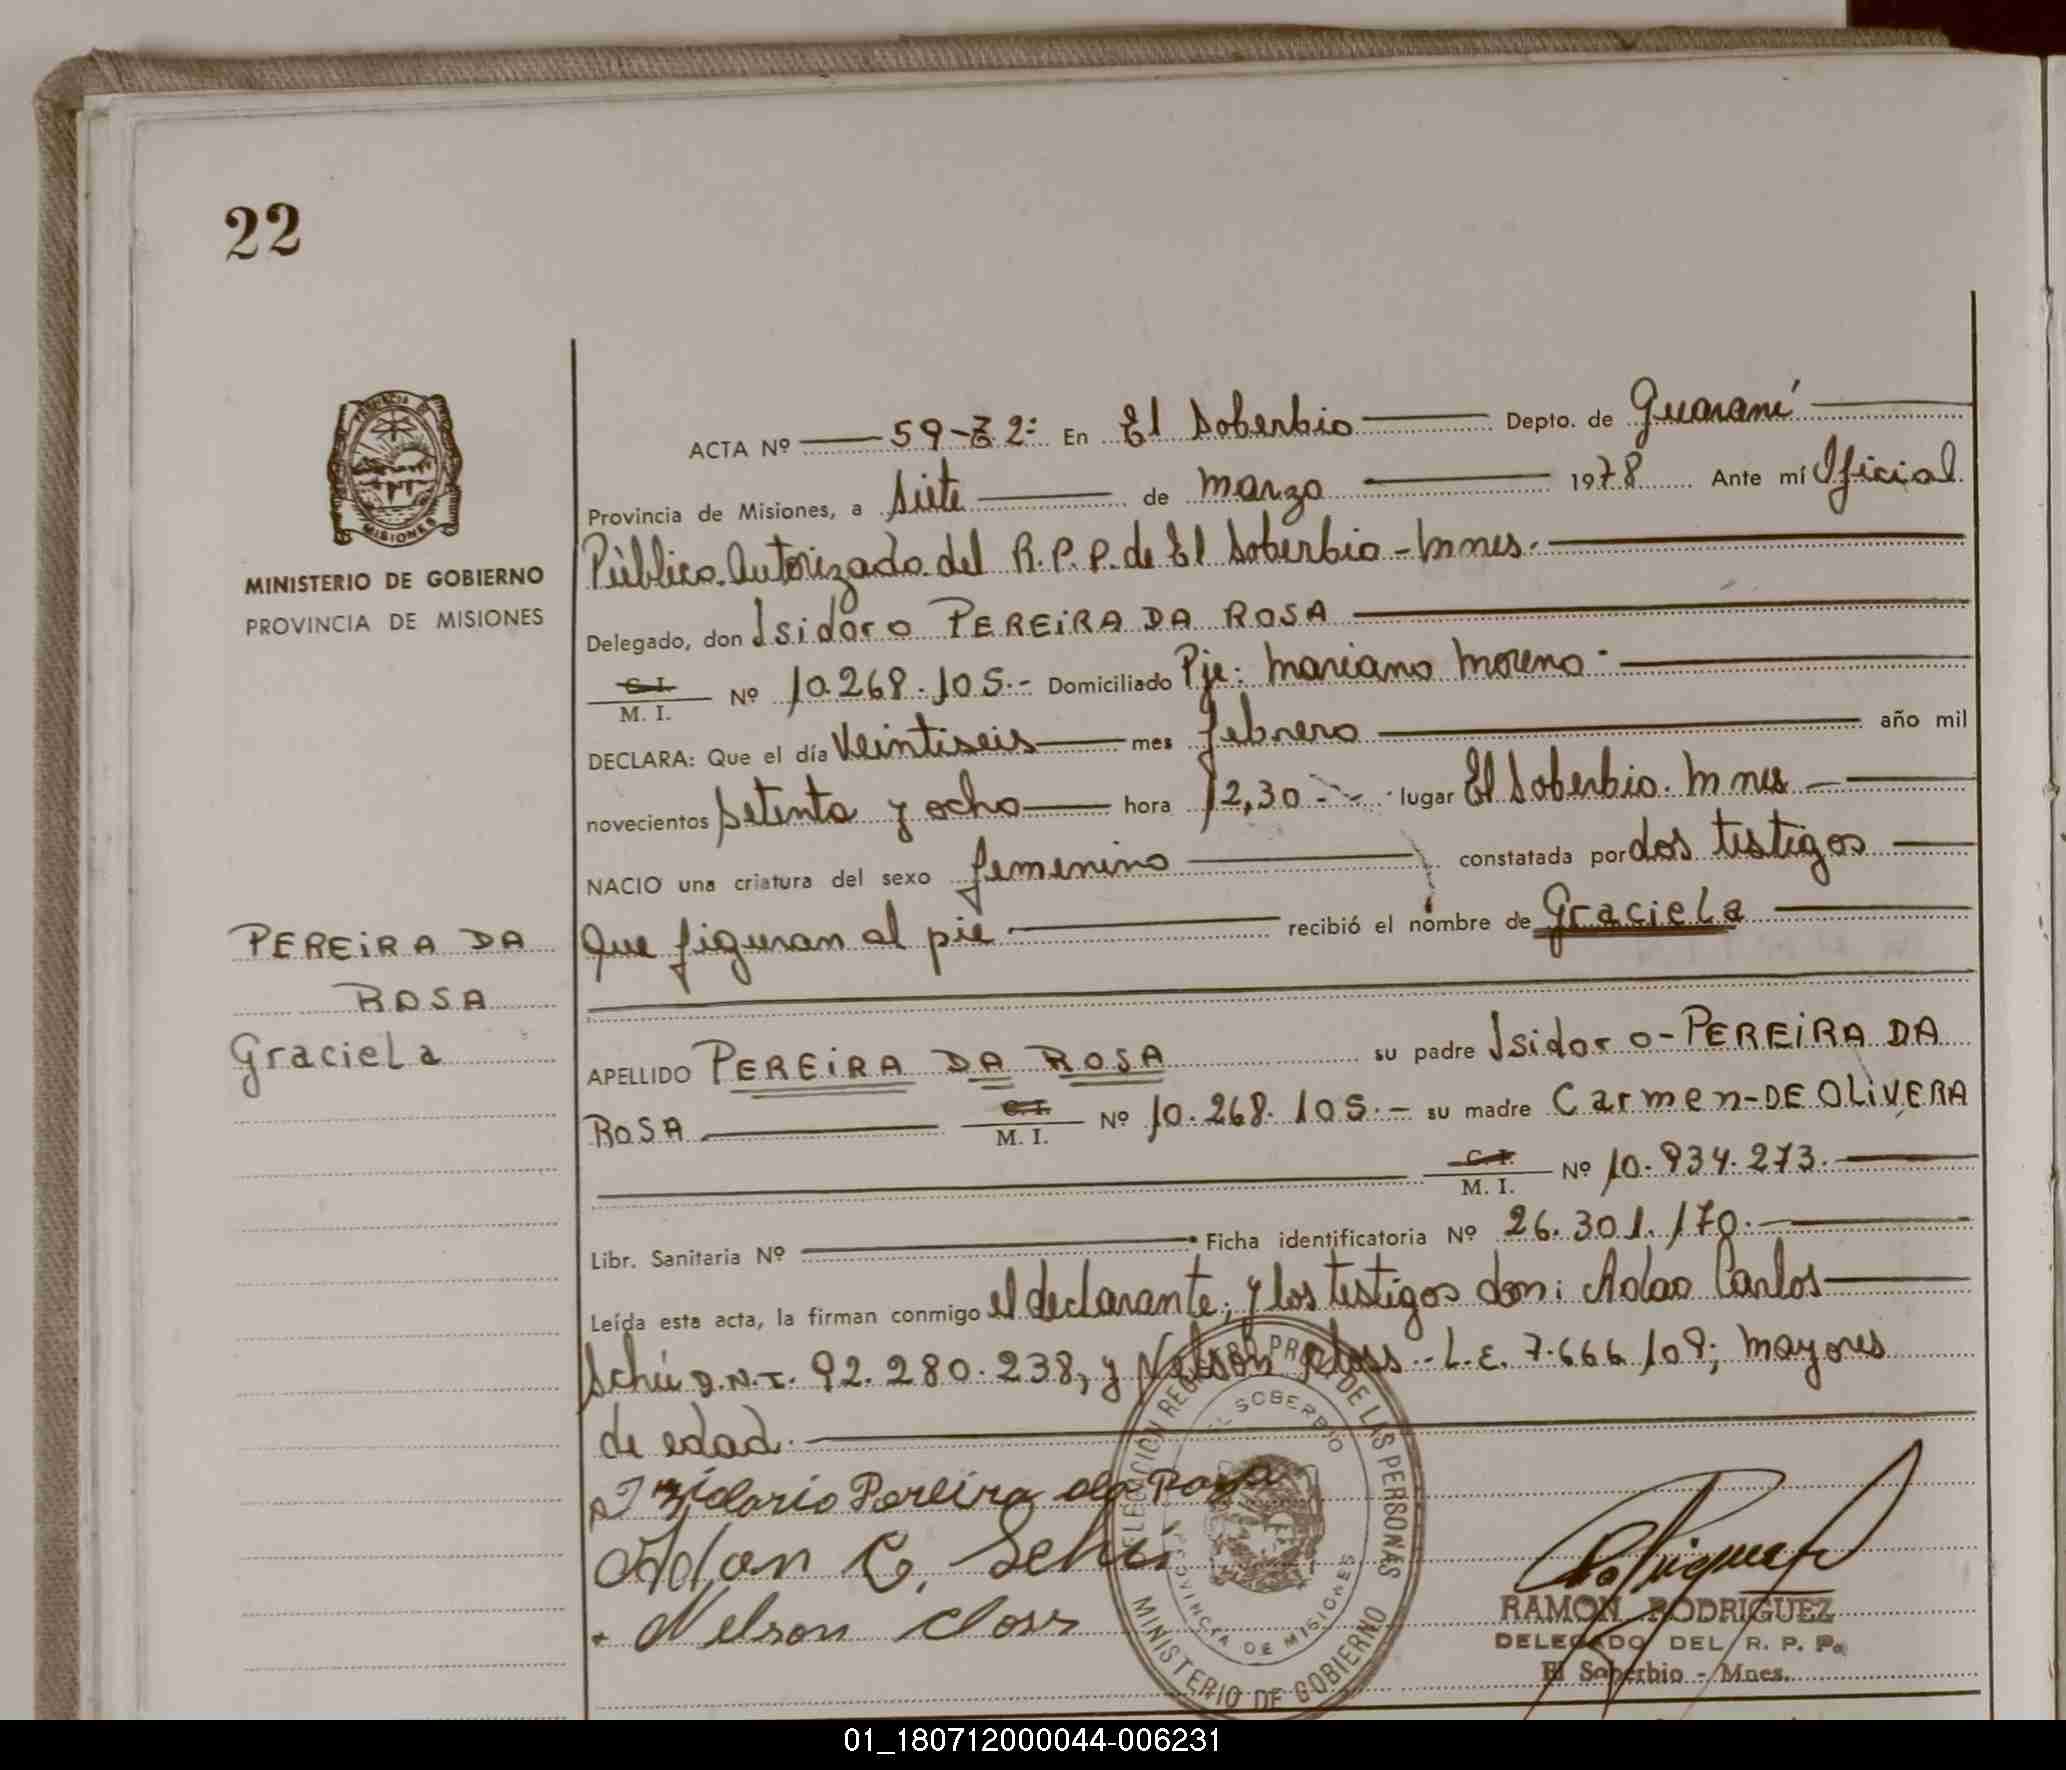 22
MINISTERIO DE GOBIERNO
PROVINCIA DE MISIONES
PEREIRA DA
ROSA
Graciela
ACTA Nº 59- 2: En El Soberbio Depto. de Guaraní
Provincia de Misiones, a siete de marzo 1978 Ante mí Oficial
Público Autorizado del R.P.P. de El Soberbio - Mnes.
Delegado, don Isidoro PEREIRA DA ROSA
C. I. M. I. Nº 10.268.105.- Domiciliado Pje: Mariano Moreno.
DECLARA: Que el día Veintiseis mes febrero año mil
novecientos setenta y ocho hora 12,30 lugar El Soberbio. Mnes
NACIO una criatura del sexo femenino constatada por dos testigos
que figuran al pie recibió el nombre de Graciela
APELLIDO PEREIRA DA ROSA su padre Isidoro-PEREIRA DA
ROSA C. I. M. I. Nº 10.268.105.- su madre Carmen-DE OLIVERA
C. I. M. I. Nº 10.934.273.
Libr. Sanitaria Nº Ficha identificatoria Nº 26.301.170.
Leída esta acta, la firman conmigo el declarante; y los testigos don: Adao Carlos
Schú D.N.I. 92.280.238, y Nelson Closs.- L.E. 7.666.108; mayores
de edad.
Izidorio Pereira da Rosa
Adan C. Schu
Nelson Closs
DELEGACION REGISTRO PROV. DE LAS PERSONAS
EL SOBERBIO
PROVINCIA DE MISIONES
MINISTERIO DE GOBIERNO
RAMON RODRIGUEZ
DELEGADO DEL R. P. P.
El Soberbio - Mnes.
01_180712000044-006231